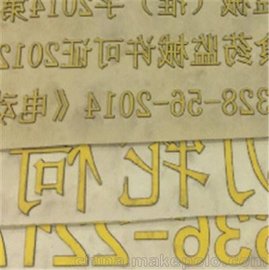 监械（准）字2014第
食药监械许可证2012
328-56-2014《电动
轮何
636-221
china.makepolo.com